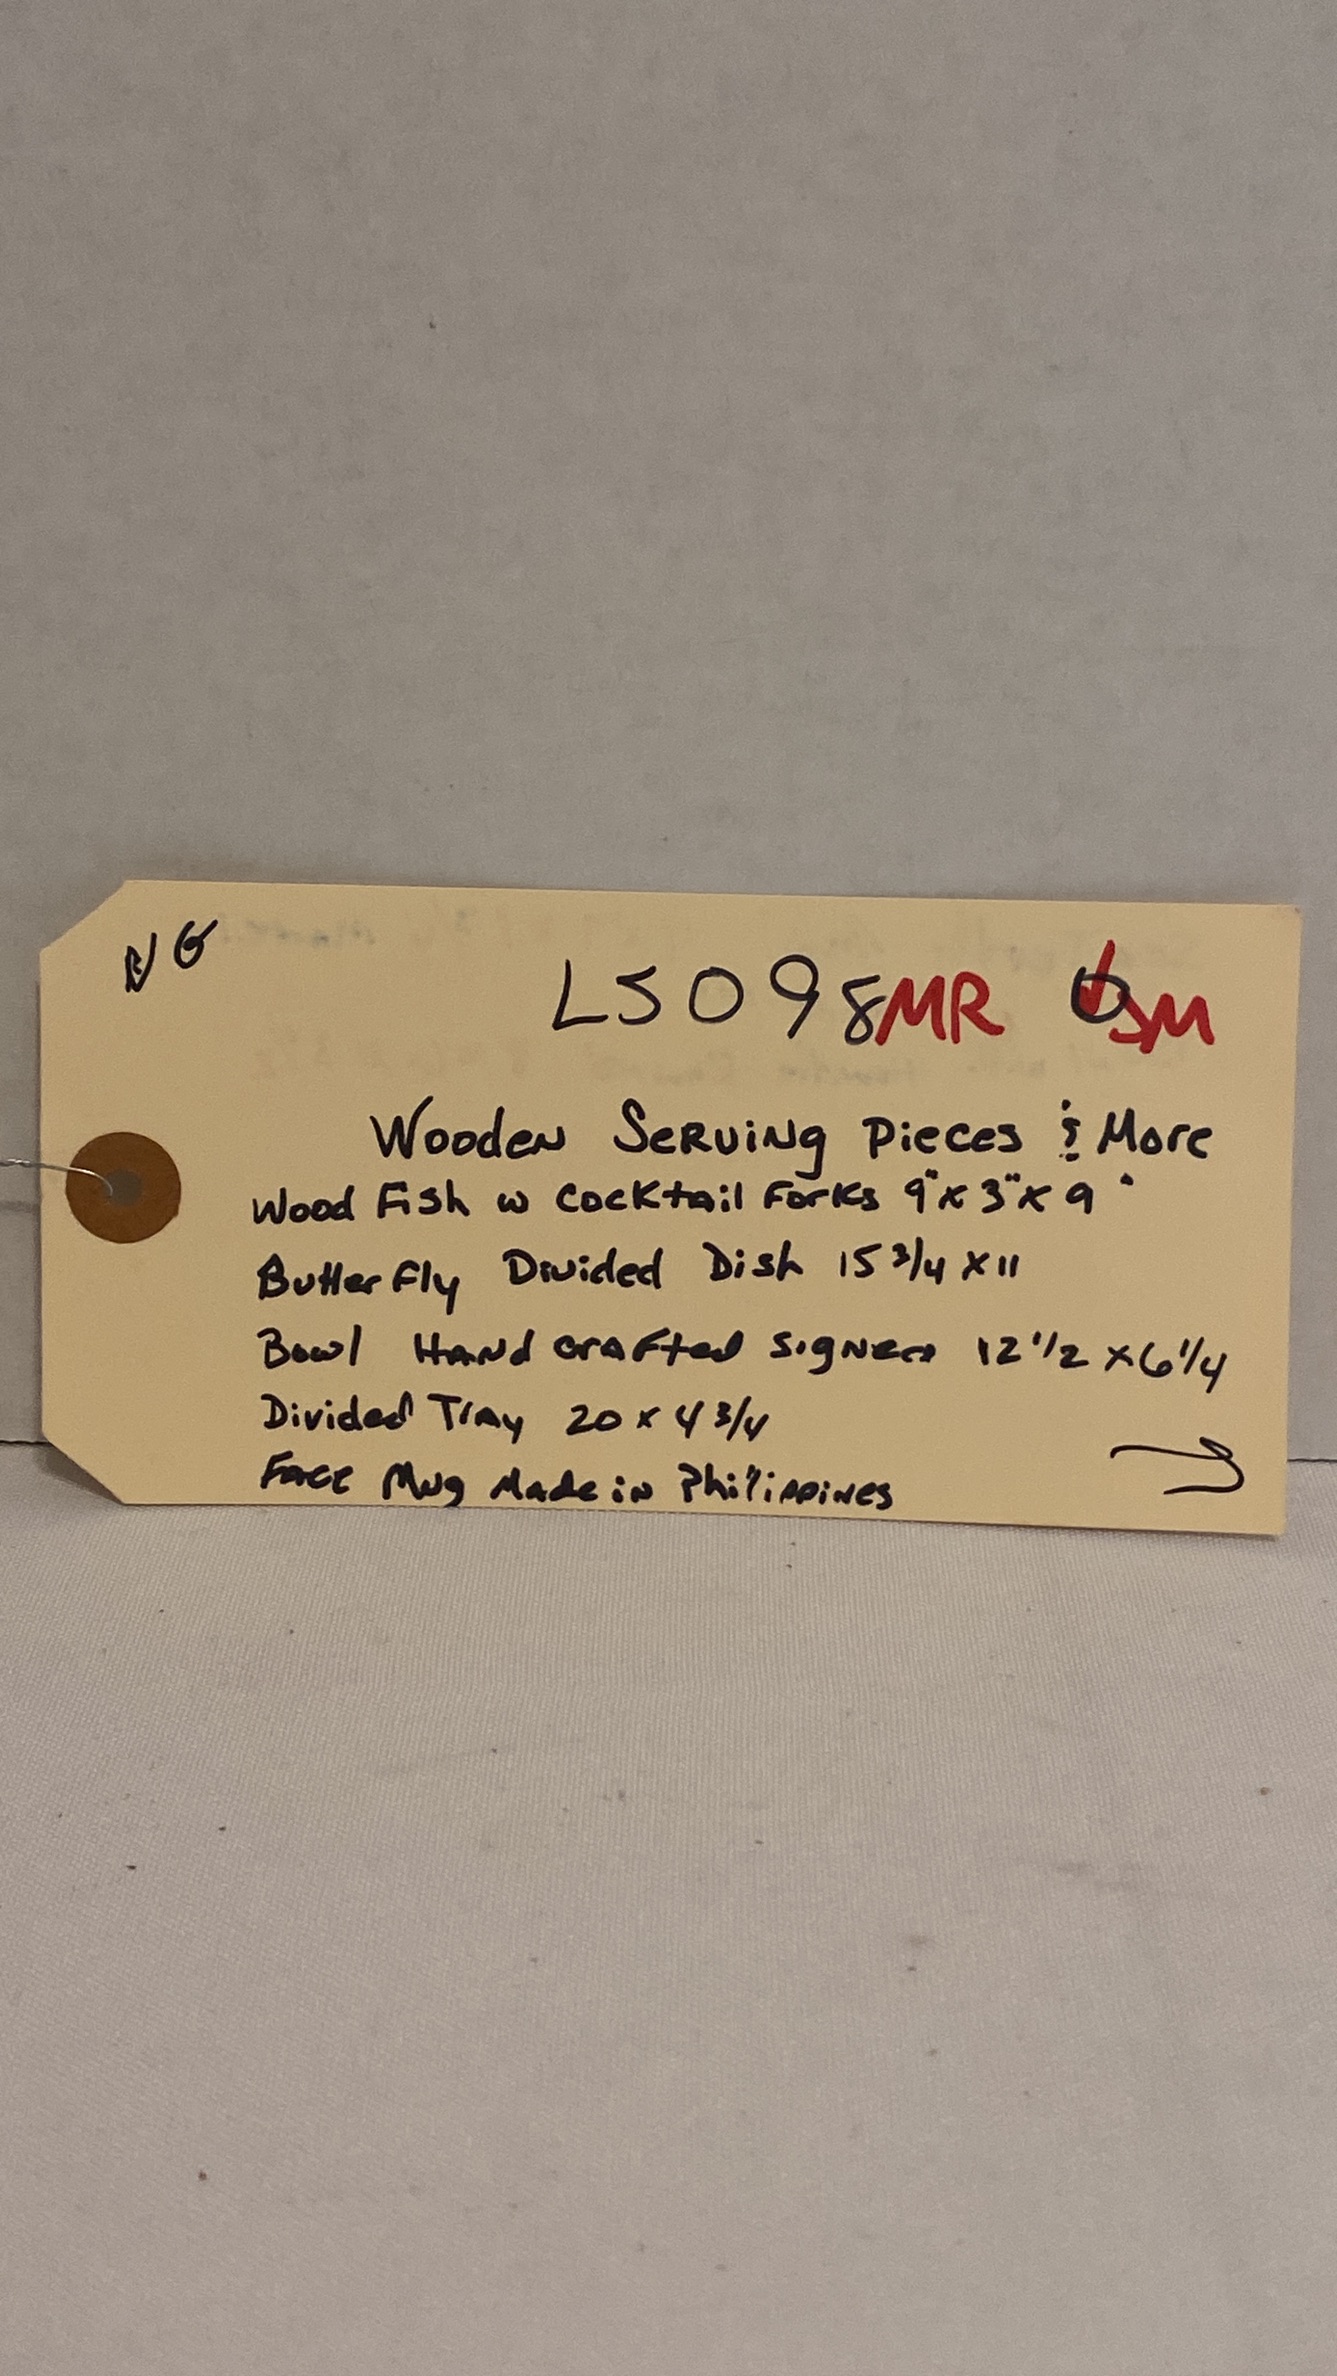 NG
LS098MR JM
Wooden Serving Pieces & More
Wood Fish w Cocktail Forks 9" x 3" x 9"
Butterfly Divided Dish 15 3/4 x 11
Bowl Hand crafted signed 12 1/2 x 6 1/4
Divided Tray 20 x 4 3/4
Face Mug Made in Philippines